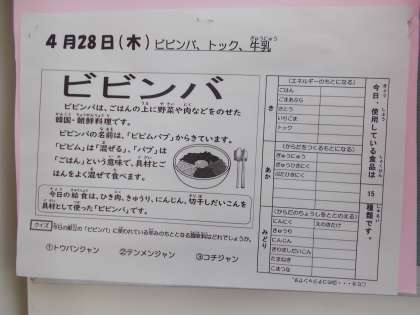 4月28日(木) ビビンバ、トック、牛乳
ビビンバ
ビビンバは、ごはんの上に野菜や肉などをのせた
韓国・朝鮮料理です。
ビビンバの名前は、「ピビムパプ」からきています。
「ピビム」は「混ぜる」、「パプ」は
「ごはん」という意味で、具材とご
はんをよく混ぜて食べます。
今日の給食は、ひき肉、きゅうり、にんじん、切干しだいこんを
具材として使った「ビビンバ」です。
クイズ 今日の献立の「ビビンバ」に使われている辛みのもととなる調味料はどれでしょうか。
①トウバンジャン ②テンメンジャン ③コチジャン
今日、使用している食品は
15
種類です。
き
(エネルギーのもとになる)
ごはん
ごまあぶら
さとう
いりごま
トック
あか
(からだをつくるもとになる)
ぎゅうにゅう
みどり
(からだのちょうしをととのえる)
にんにく
えのきたけ
きゅうり
にんじん
きりぼしだいこん
たまねぎ
こまつな